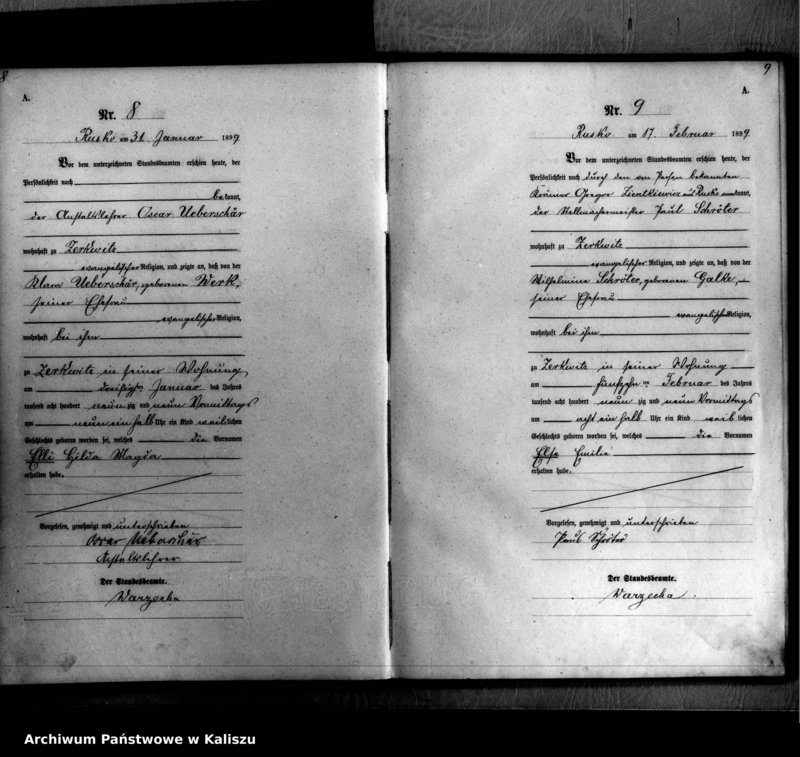 8
A.
Nr. 8
Rusko am 31 Januar 1899
Vor dem unterzeichneten Standesbeamten erschien heute, der
Persönlichkeit nach
bekannt,
der Anstaltslehrer Oscar Ueberschär
wohnhaft zu Zerkwitz
evangelischer Religion, und zeigte an, daß von der
Klara Ueberschär, geborenen Werk,
seiner Ehefrau
evangelischer Religion,
wohnhaft bei ihm
zu Zerkwitz in seiner Wohnung
am dreißigsten Januar des Jahres
tausend acht hundert neunzig und neun Vormittags
um neun ein halb Uhr ein Kind weiblichen
Geschlechts geboren worden sei, welches die Vornamen
Elli Hilda Magda
erhalten habe.
Vorgelesen, genehmigt und unterschrieben
Oscar Ueberschär
Anstaltslehrer
Der Standesbeamte.
Warzecha
9
A.
Nr. 9
Rusko am 17 Februar 1899
Vor dem unterzeichneten Standesbeamten erschien heute, der
Persönlichkeit nach durch den von Person bekannten
Krämer Gregor aus Rusko anerkannt,
der Stellmachermeister Paul Schröter
wohnhaft zu Zerkwitz
evangelischer Religion, und zeigte an, daß von der
Wilhelmine Schröter, geborenen Galke,
seiner Ehefrau
evangelischer Religion,
wohnhaft bei ihm
zu Zerkwitz in seiner Wohnung
am fünfzehnten Februar des Jahres
tausend acht hundert neunzig und neun Vormittags
um acht ein halb Uhr ein Kind weiblichen
Geschlechts geboren worden sei, welches die Vornamen
Else Emilie
erhalten habe.
Vorgelesen, genehmigt und unterschrieben
Paul Schröter
Der Standesbeamte.
Warzecha.
Archiwum Państwowe w Kaliszu